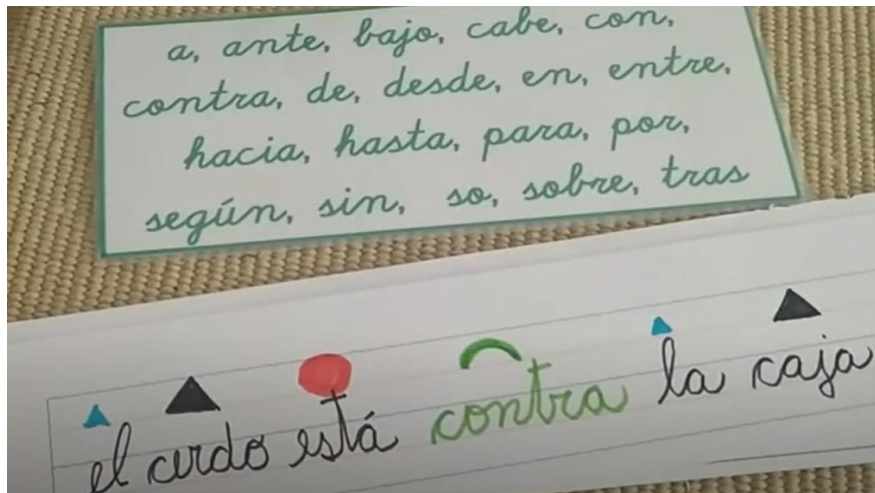 a, ante, bajo, cabe, con,
contra, de, desde, en, entre,
hacia, hasta, para, por,
según, sin, so, sobre, tras
el cerdo está contra la caja